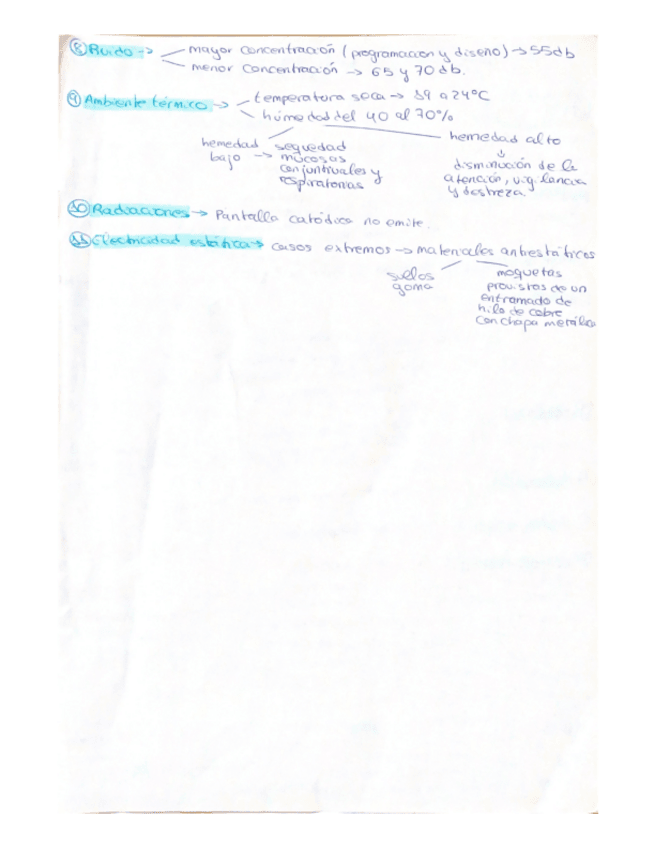 ⑧ Ruido -> mayor concentración (programacion y diseño) -> 55db
menor concentración -> 65 y 70 db.
⑨ Ambiente térmico -> temperatura seca -> 19 a 24ºC
húmedad del 40 al 70%
hemedad bajo -> sequedad mucosas conjuntivales y respiratorias
hemedad alto
disminución de la
atención, vigilancia
y destreza.
⑩ Radiaciones -> Pantalla catódica no emite.
⑪ Electricidad estática -> casos extremos -> materiales antiestáticos
suelos
goma
moquetas
provistos de un
entramado de
hilo de cobre
con chapa metálica